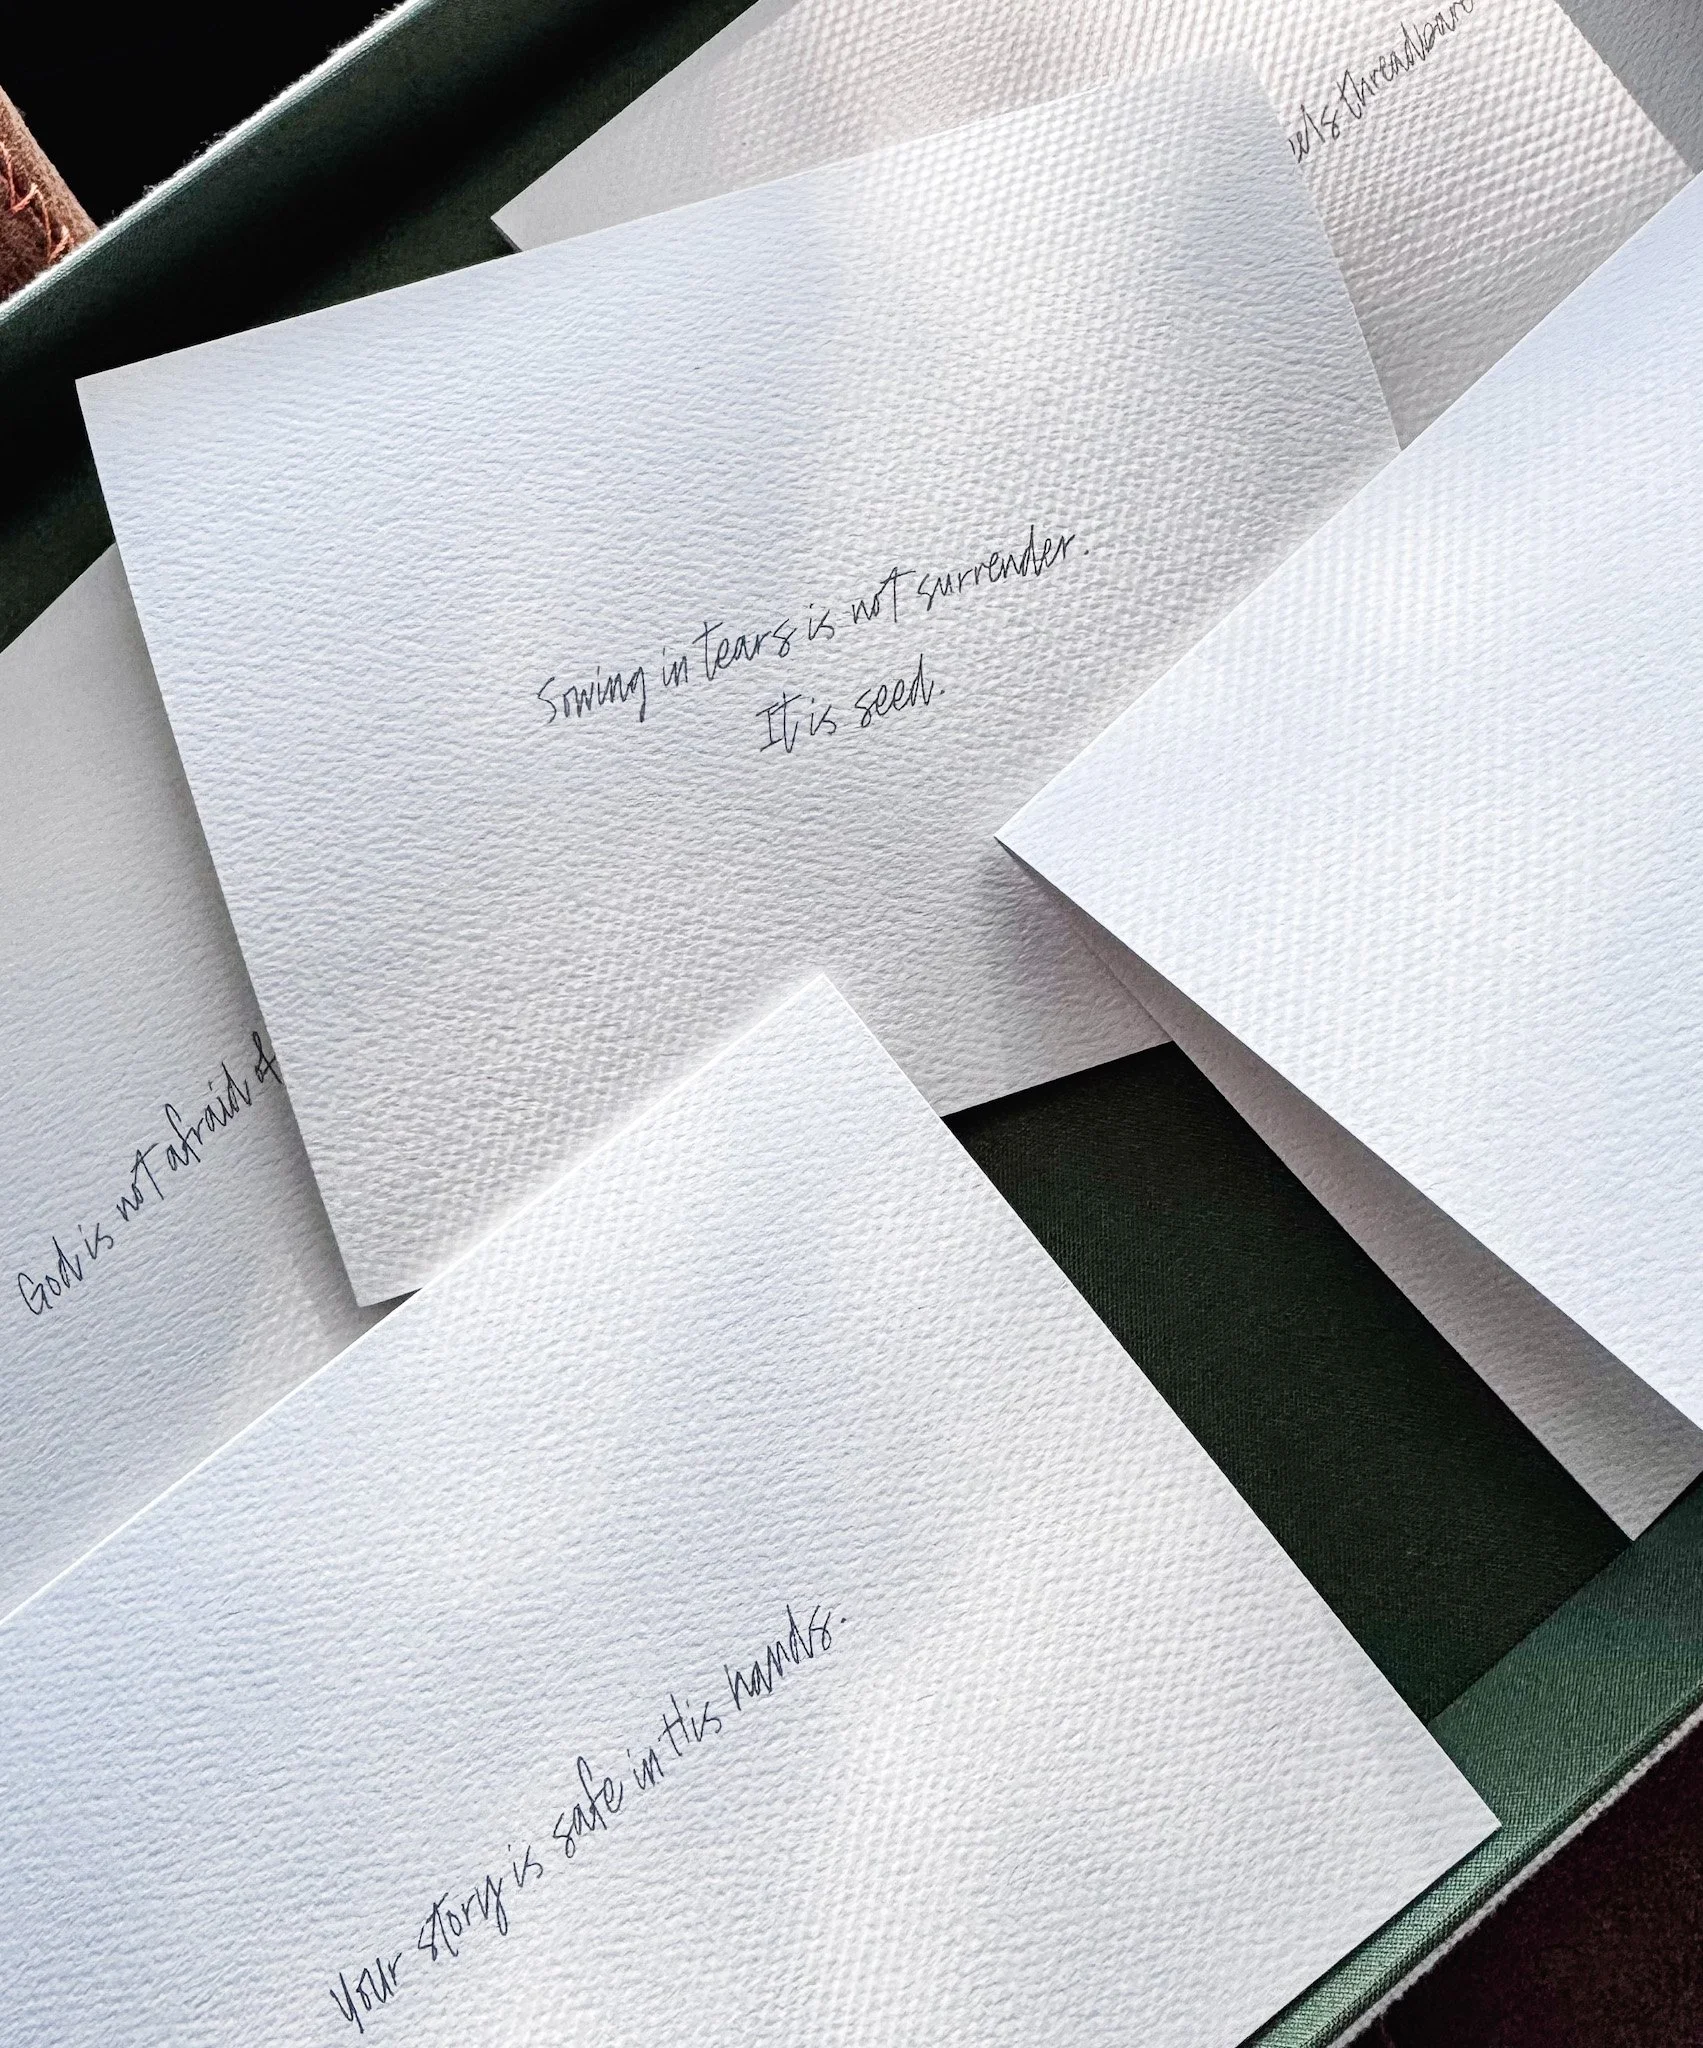 threadbare
Sowing in tears is not surrender.
It is seed.
God is not afraid of
Your story is safe in His hands.